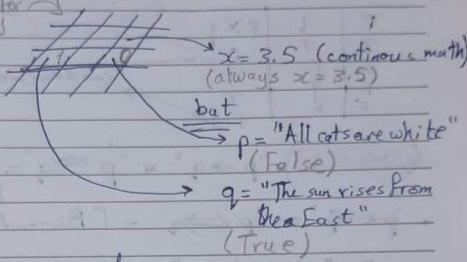 x = 3.5 (continous math)
(always x = 3.5)
but
p = "All cats are white"
(False)
q = "The sun rises from
the East"
(True)